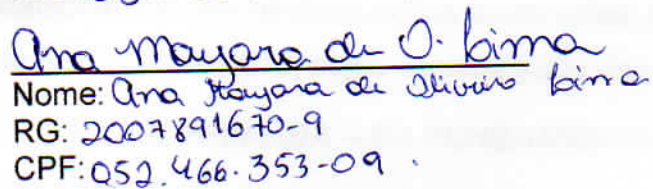 Ana Mayara de O. Lima
Nome: Ana Mayara de Oliveira Lima
RG: 2007891670-9
CPF: 052.466.353-09.